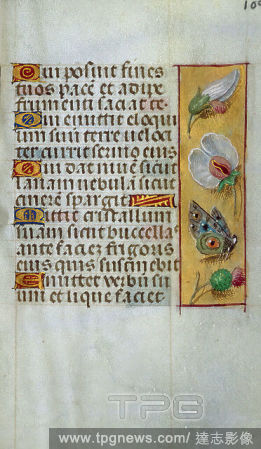 10
Qui posuit fines
tuos pacē et adipe
frumenti saciat te
Qui emittit eloqui
um suū terre ueloc
ter currit sermo eius
Qui dat niuē sicut
lanam nebulā sicut
cinerē spargit
Mittit cristallum
suam sicut buccellas
ante faciēz frigoris
eius quis sustinebit
Emittet verbū su
um et lique faciet
TPG
www.tpgnews.com/ 達志影像